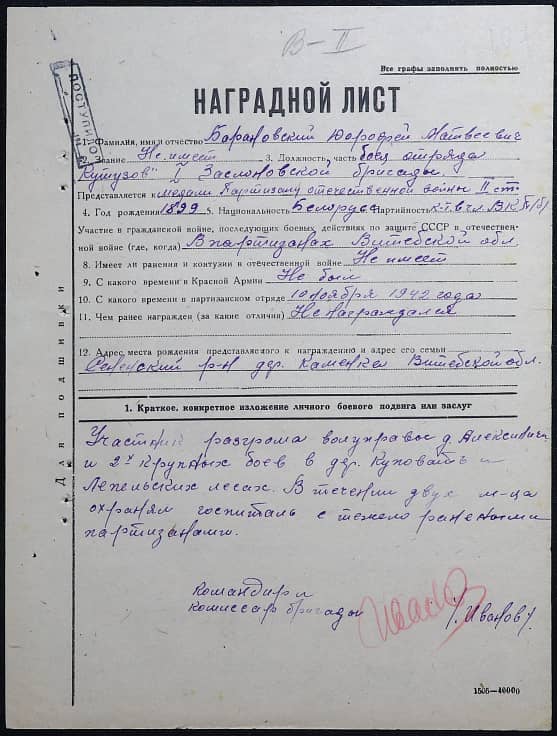 В-II
Все графы заполнять полностью
НАГРАДНОЙ ЛИСТ
1. Фамилия, имя и отчество Барановский Матвеевич
2. Звание Не имеет 3. Должность, часть боец отряда
Кутузов" I Заслоновской бригады.
Представляется к медали Партизану отечественной войны II ст
4. Год рождения 1899 5. Национальность Белорус 6. Партийность ВКП/б/
Участие в гражданской войне, последующих боевых действиях по защите СССР в отечествен-
ной войне (где, когда) В партизанах Витебской обл.
8. Имеет ли ранения и контузии в отечественной войне Не имеет
9. С какого времени в Красной Армии Не был
10. С какого времени в партизанском отряде 10 ноября 1942 года
11. Чем ранее награжден (за какие отличия) Не награждался
12. Адрес места рождения представляемого к награждению и адрес его семьи
р-н дер. Витебской обл.
Для подшивки
1. Краткое, конкретное изложение личного боевого подвига или заслуг
Участник разгрома д.
и 2х крупных боев в дер. Куповать и
Лепельских лесах. В течении двух м-ца
охранял госпиталь с тяжело ранеными
партизанами.
Командир и
комиссар бригады /Иванов/.
1505—40000